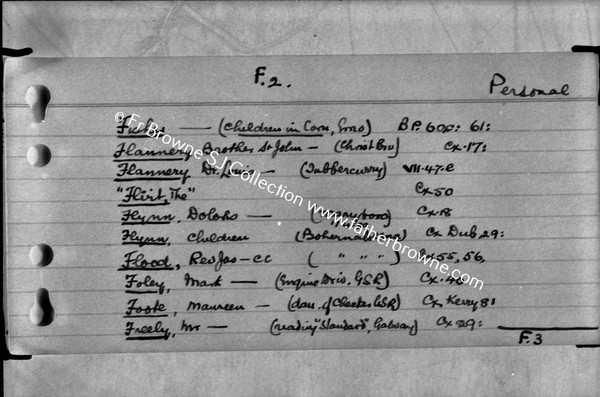 F.2.
Personal
(Children in Corn, Emo) B.P. 600: 61:
Flannery Brother St John - (Christ Bro) Cx. 17:
Flannery Dr. - (Tubbercurry) VII. 47. e
"Flirt, The" Cx 50
Flynn, Dolohs — Cx. 18
Flynn, Children Cx Dub 29:
Flood, Rev Jas - CC ( " " " ) 55, 56,
Foley, Mark — (Engine Driv. GSR) Cx. 40
Foote, Maureen - (dau. of Checker GSR) Cx Kerry 81
Freely, Mr — (reading "Standard", Galway) Cx 29:
F.3
© Fr Browne S.J. Collection www.fatherbrowne.com